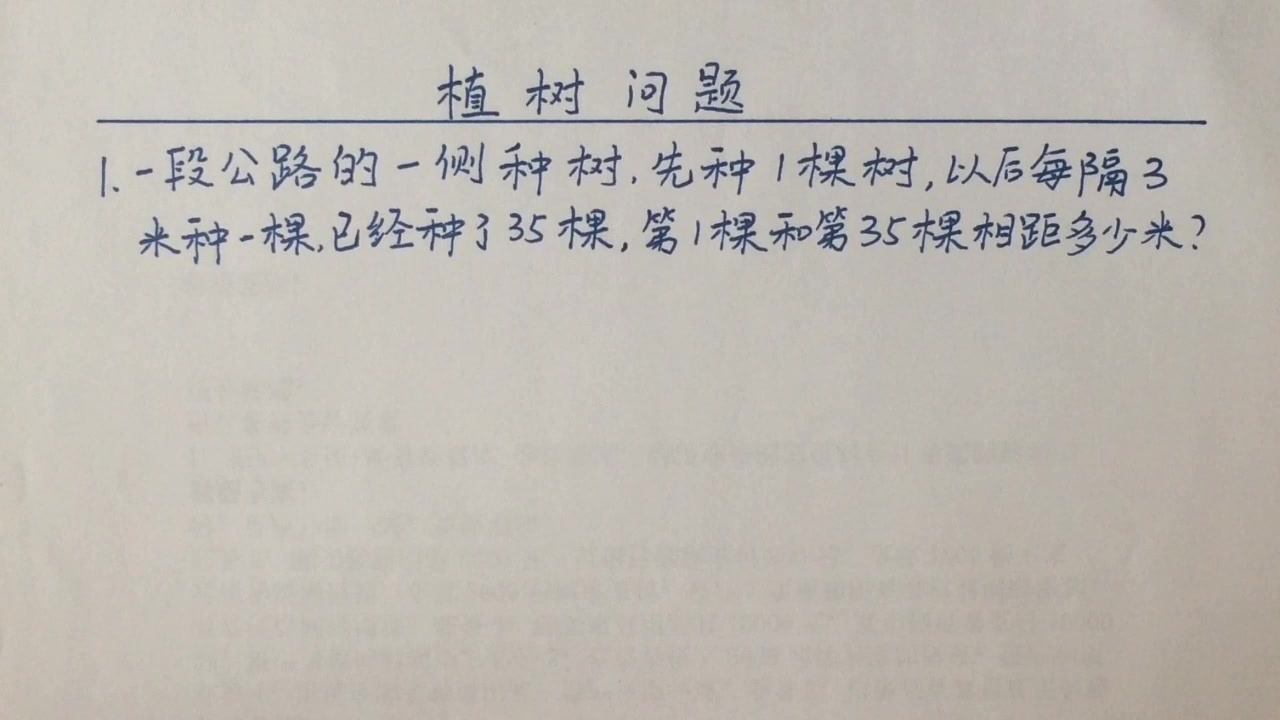 植树问题
1.一段公路的一侧种树.先种1棵树,以后每隔3
米种一棵,已经种了35棵,第1棵和第35棵相距多少米?